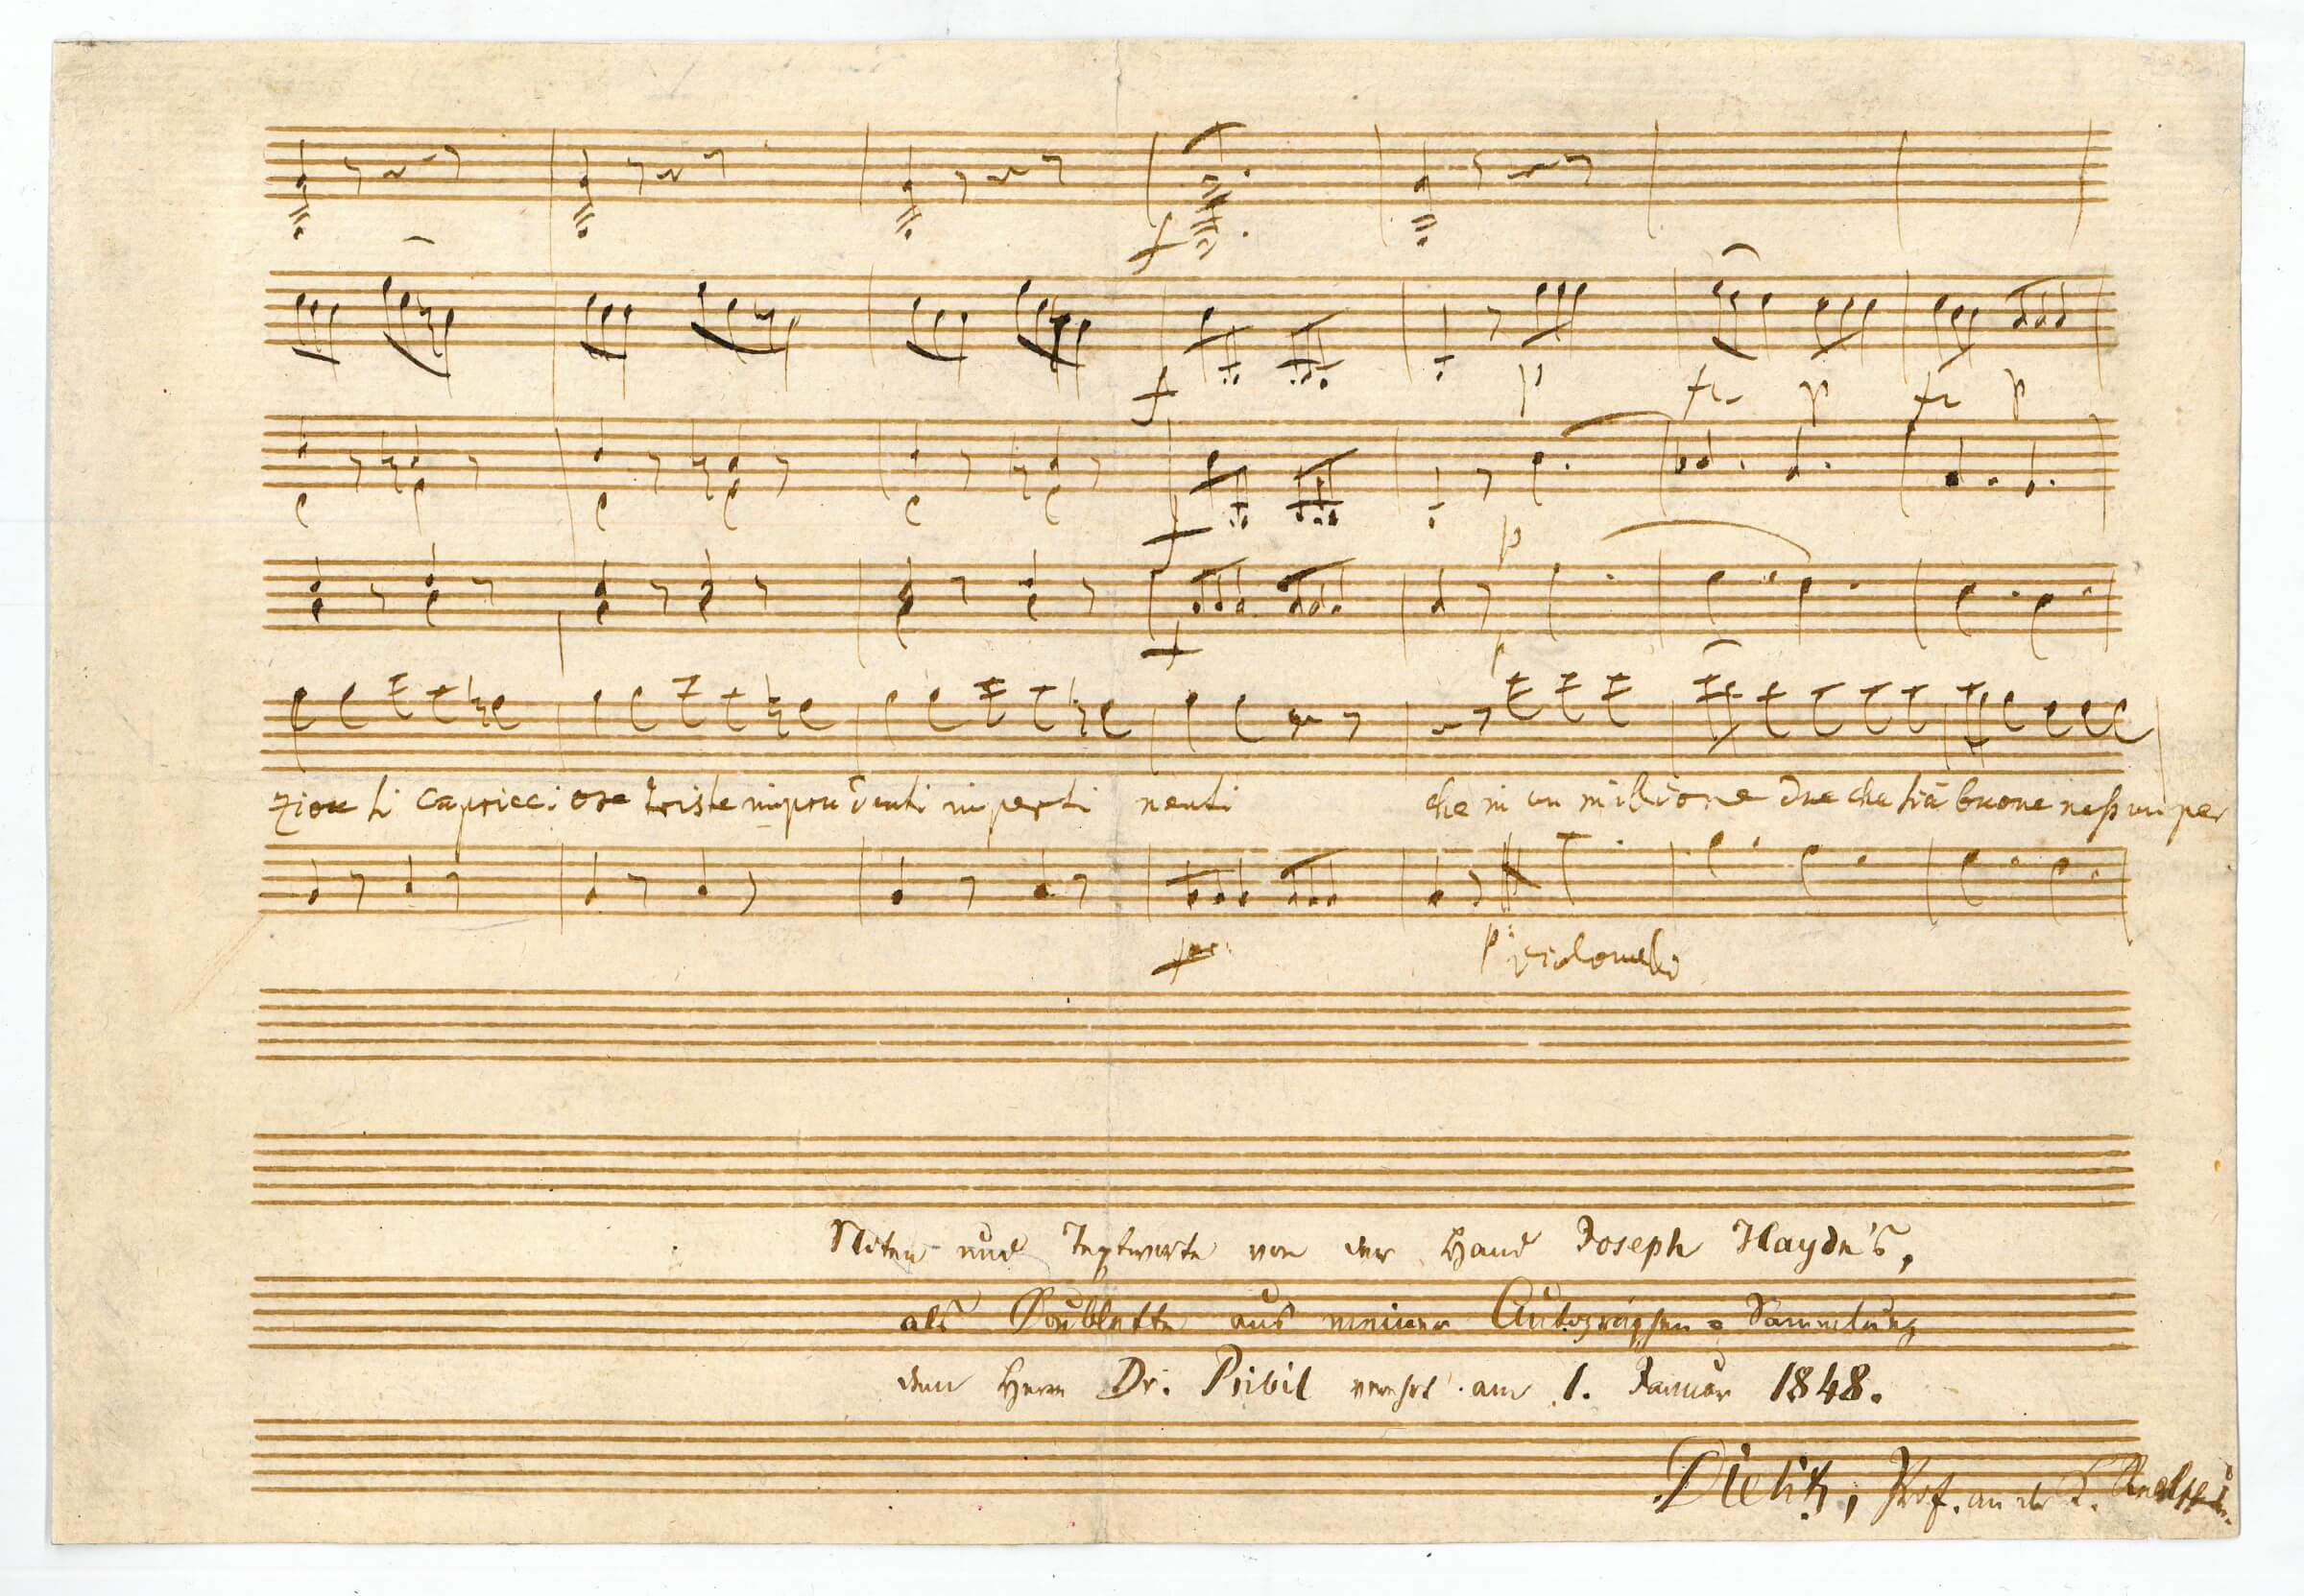 f
f p fz p fz p
f p
f p
zion ti capricci ose triste imprudenti inperti nenti che in un millione due che sia buone neßun per
for: p: violoncelli
Noten und Textworte von der Hand Joseph Haydn's,
als Doublette aus meiner Autographen-Sammlung
dem Herrn Dr. Pribil verehrt am 1. Januar 1848.
Dielitz, Prof. an der K. Realschule.